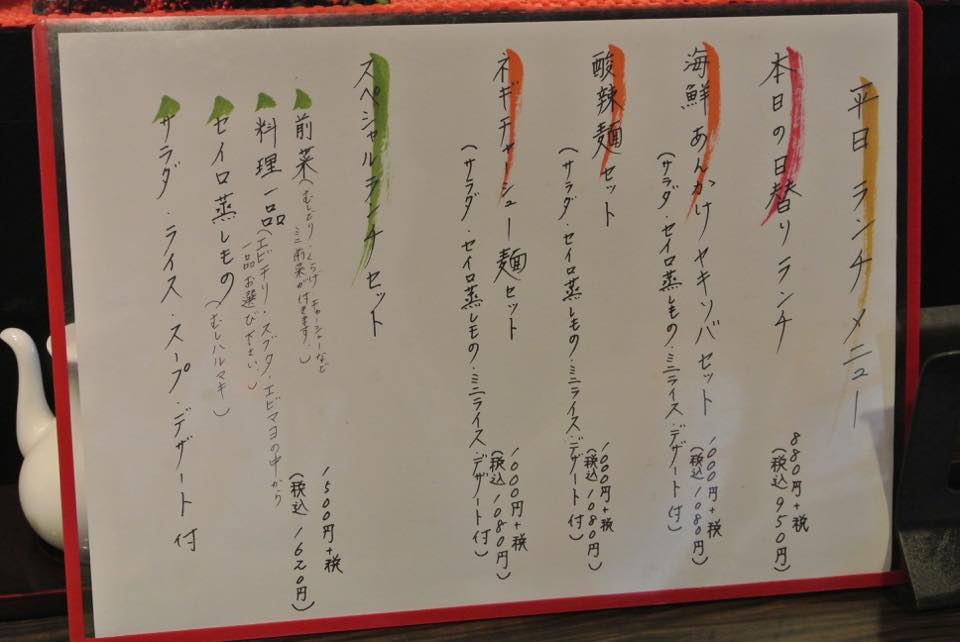 平日 ランチメニュー
本日の日替りランチ
880円+税
(税込 950円)
海鮮あんかけヤキソバセット
(サラダ・セイロ蒸しもの・ミニライス・デザート付)
1000円+税
(税込 1080円)
酸辣麺セット
(サラダ・セイロ蒸しもの・ミニライス・デザート付)
1000円+税
(税込 1080円)
ネギチャーシュー麺セット
(サラダ・セイロ蒸しもの・ミニライス・デザート付)
1000円+税
(税込 1080円)
スペシャルランチセット
1500円+税
(税込 1620円)
前菜(むしどり・くらげ チャーシューなど
ミニ前菜が付きます。)
料理一品(エビチリ・スブタ・エビマヨの中から
一品お選び下さい。)
セイロ蒸しもの(むしハルマキ)
サラダ・ライス・スープ・デザート付